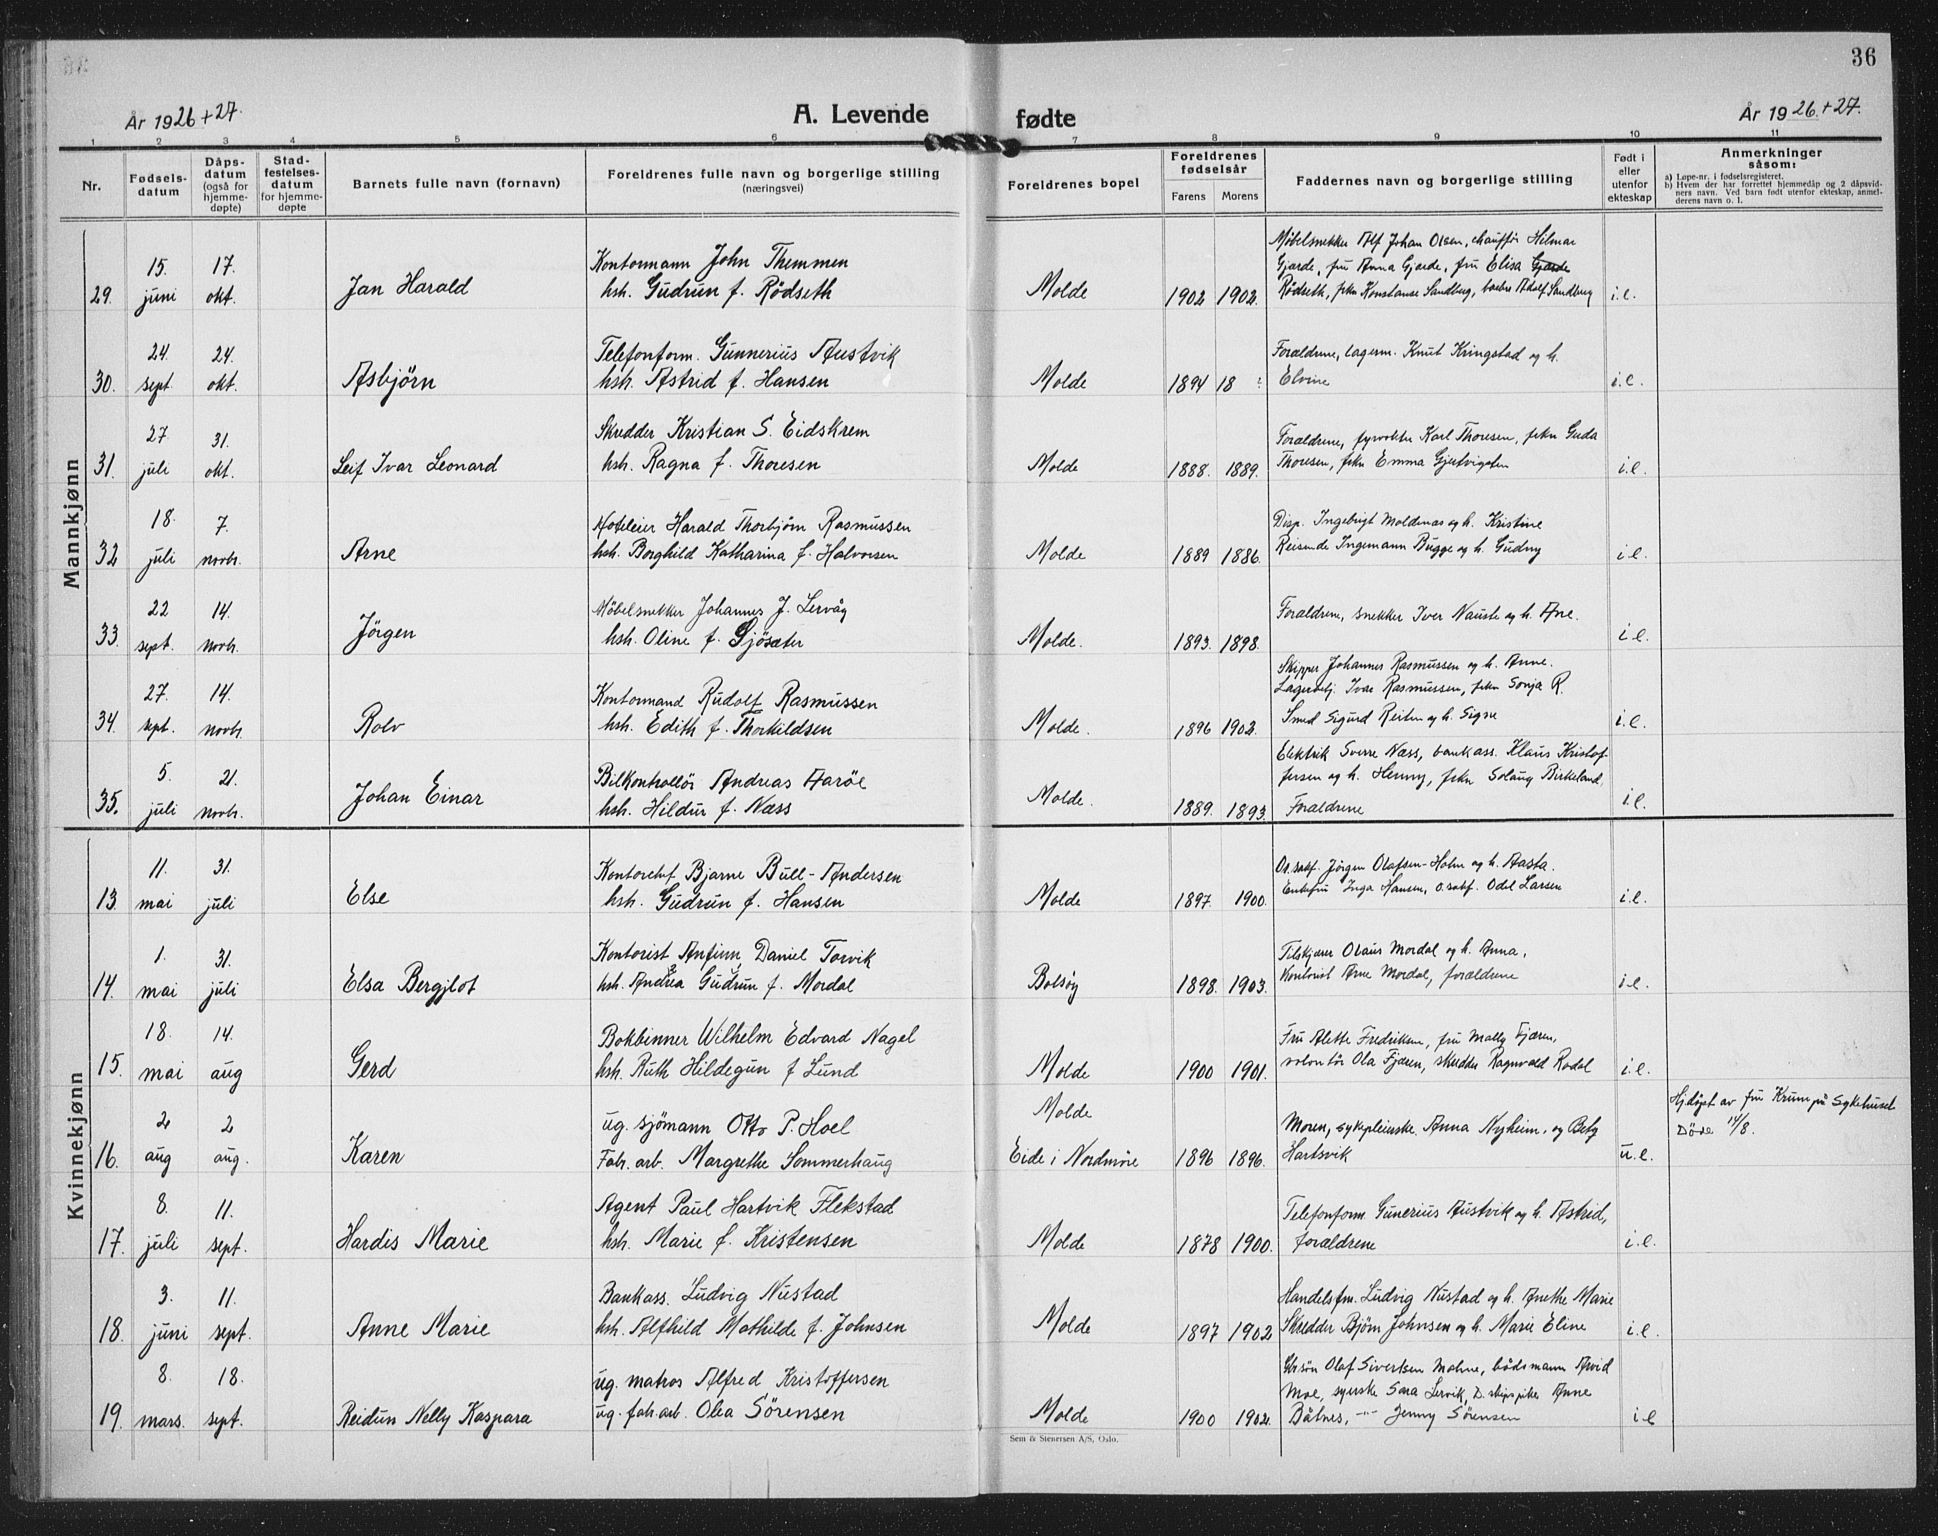 36
År 1926+27.
A. Levende fødte
År 1926.+27.
1 2 3 4 5 6 7 8 9 10 11
Nr.
Fødsels-
datum
Dåps-
datum
(også for
hjemme-
døpte)
Stad-
festelses-
datum
for hjemme-
døpte
Barnets fulle navn (fornavn)
Foreldrenes fulle navn og borgerlige stilling
(næringsvei)
Foreldrenes bopel
Foreldrenes
fødselsår
Farens Morens
Faddernes navn og borgerlige stilling
Født i
eller
utenfor
ekteskap
Anmerkninger
såsom:
a) Løpe-nr. i fødselsregisteret.
b) Hvem der har forrettet hjemmedåp og 2 dåpsvid-
ners navn. Ved barn født utenfor ekteskap, anmel-
derens navn o. l.
Mannkjønn
29. 15. juni 17. okt. Jan Harald
Kontormann John Themmen
hsh. Gudrun f. Rödseth
Molde 1902 1902.
Møbelsnekker Alf Johan Olsen, chauffør Hilmar
Gjærde, fru Anna Gjærde, fru Elisa Gjærde
Rødseth, frkn Konstanse Sandberg, Adolf Sandberg
i.e.
30. 24. sept. 24. okt. Asbjörn
Telefonform. Gunnerius Austvik
hsh. Astrid f. Hansen
Molde 1894 18
Forældrene, lagerm. Knut Kringstad og h.
Elvine
i.e.
31. 27 juli 31. okt. Leif Ivar Leonard
Skredder Kristian S. Eidskrem
hsh. Ragna f. Thoresen
Molde 1888. 1889.
Forældrene, fyrvokter Karl Thoresen, frkn Guda
Thoresen, frkn Emma
i.e.
32 18. juli 7. novbr. Arne
Hoteleier Harald Thorbjørn Rasmussen
hsh. Borghild Katharina f. Halvorsen
Molde 1889 1886.
Disp. Ingebrigt Moldenæs og h. Kristine
Reisende Ingemann Bugge og h. Gudny
i.e.
33. 22 sept. 14. novbr. Jörgen
Møbelsnekker Johannes J. Lervåg
hsh. Oline f. Sjösæter
Molde. 1893. 1898.
Forældrene, snekker Iver Nauste og h. Ane.
i.e.
34. 27. sept. 14. novbr. Rolv
Kontormand Rudolf Rasmussen
hsh. Edith f. Thorkildsen
Molde. 1896 1902.
Skipper Johannes Rasmussen og h. Anne.
Lagerbetj. Ivar Rasmussen, frkn Sonja R.
Smed Sigurd Reiten og h. Signe
i.e.
35. 5. juli 21. novbr. Johan Einar
Bilkontrollör Andreas Harøe
hsh. Hildur f. Næss
Molde. 1889. 1893.
Elektrik Sverre Næss, bankass. Klaus Kristof-
fersen og h. Henny, frkn Solaug Birkeland,
Forældrene
i.e.
Kvinnekjønn
13. 11. mai 31. juli Else
Kontorchef Bjarne Bull-Andersen
hsh. Gudrun f. Hansen
Molde 1897. 1900.
O.r.sakf. Jörgen Olafsen-Holm og h. Aasta.
Enkefru Inga Hansen, o.sakf. Odd Larsen
i.e.
14. 1. mai 31. juli Elsa Bergjlot
Kontorist Anfinn Daniel Torvik
hsh. Andrea Gudrun f. Mordal
Bolsøy 1898. 1903.
Tilskjærer Olaus Mordal og h. Anna,
Kontorist Arne Mordal, forældrene
i.e.
15. 18. mai 14. aug Gerd
Bokbinner Wilhelm Edvard Nagel
hsh. Ruth Hildegun f Lund
Molde 1900 1901.
Fru Alette Fredriksen, fru Mally Fjæren,
Ola Fjæren, skredder Ragnvald Rødal
i.e.
16. 2 aug 2 aug. Karen
ug. sjömann Otto P. Hoel
Fabr. arb. Margrethe Sommerhaug
Molde
Eide i Nordmøre 1896 1896.
Moren, sykepleierske Anna Nyheim, og Betzy
Hartsvik
u.e.
Hj.døpt av fru Krum på Sykehuset
Døde 11/8.
17. 8. juli 11. sept. Hardis Marie
Agent Paul Hartvik Flekstad
hsh. Marie f. Kristensen
Molde 1878 1900.
Telefonform. Gunerius Austvik og h. Astrid,
forældrene
i.e.
18. 3. juni 11. sept. Anne Marie
Bankass. Ludvig Nustad
hsh. Alfhild Mathilde f. Johnsen
Molde 1897 1902
Handelsfm. Ludvig Nustad og h. Anethe Marie
Skredder Bjørn Johnsen og h. Marie Eline
i.e.
19. 8. mars. 18. sept. Reidun Nelly Kaspara
ug. matros Alfred Kristoffersen
ug. fabr.arb. Olea Sörensen
Molde 1900 1902.
Olaf Sivertsen Malme, bådsmann Arvid
Moe, syerske Sara Lervik, Anne
Båtnes, -"- Jenny Sörensen
i e
Sem & Stenersen A/S, Oslo.